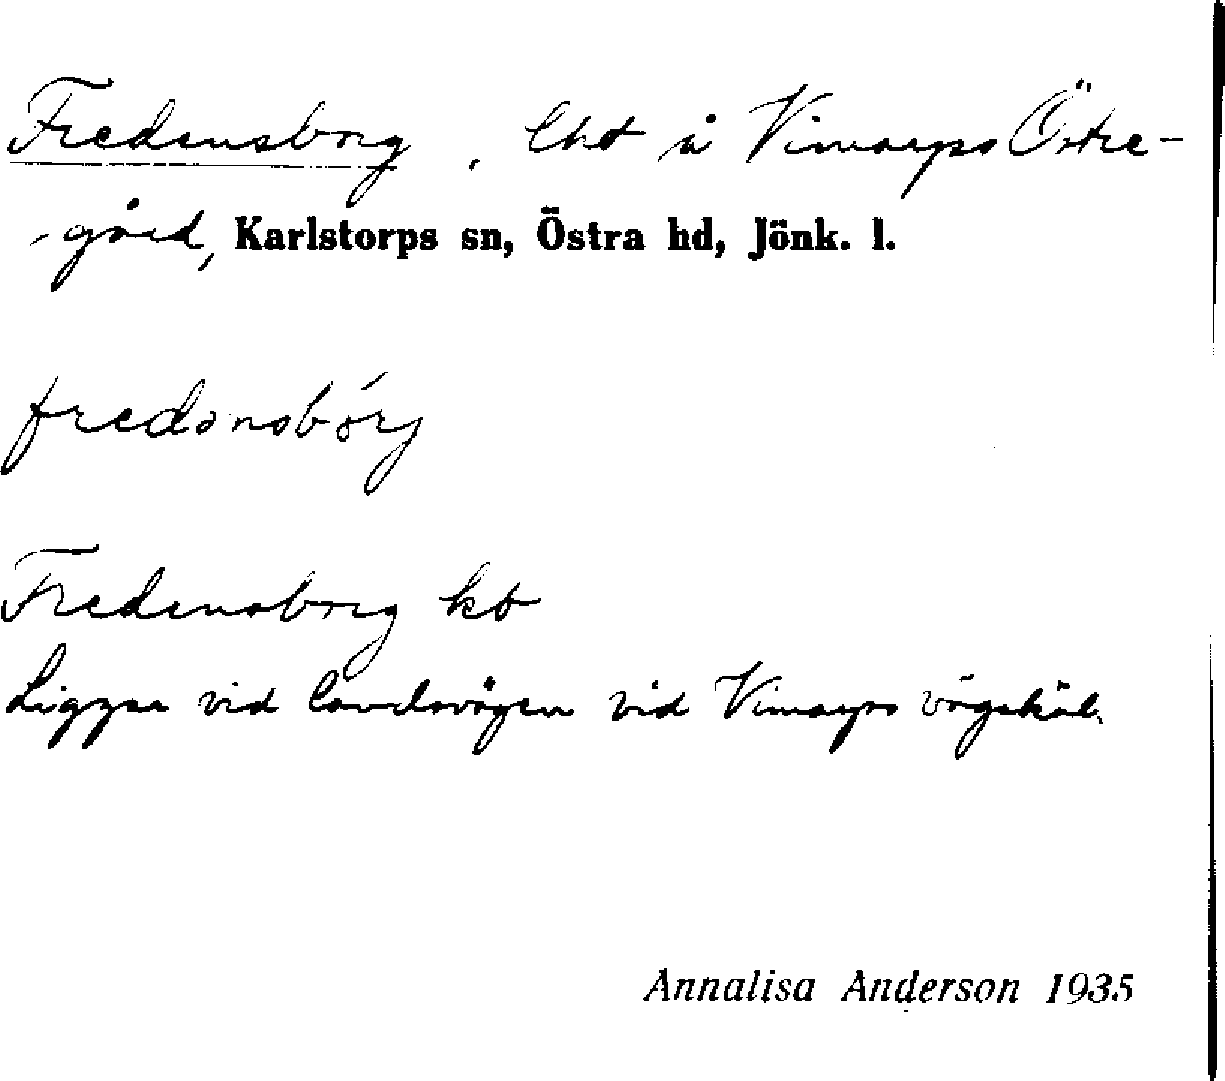 Fredensborg, lht å Vimarps Östre-
-gård, Karlstorps sn, Östra hd, Jönk. l.
fredənsbórj
Fredensborg kb
Ligger vid landsvägen vid Vimarps vägskäl.
Annalisa Anderson 1935